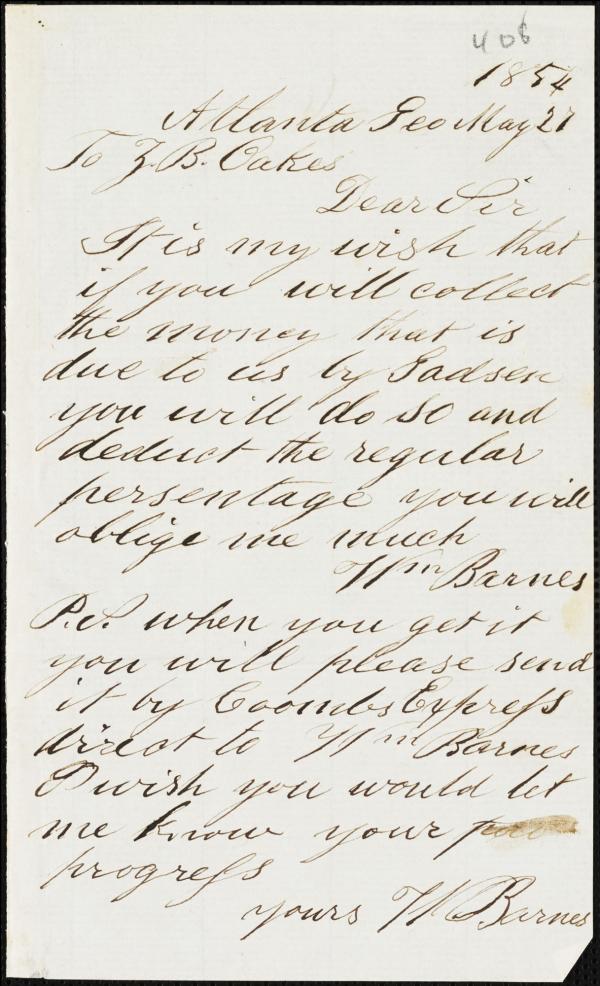 406
1854
Atlanta Geo May 27
To Z. B. Oakes
Dear Sir
It is my wish that
if you will collect
the money that is
due to us by Gadsen
you will do so and
deduct the regular
persentage you will
oblige me much
Wm Barnes
P.S. when you get it
you will please send
it by Coombs Express
direct to Wm Barnes
I wish you would let
me know your
progress
yours W Barnes